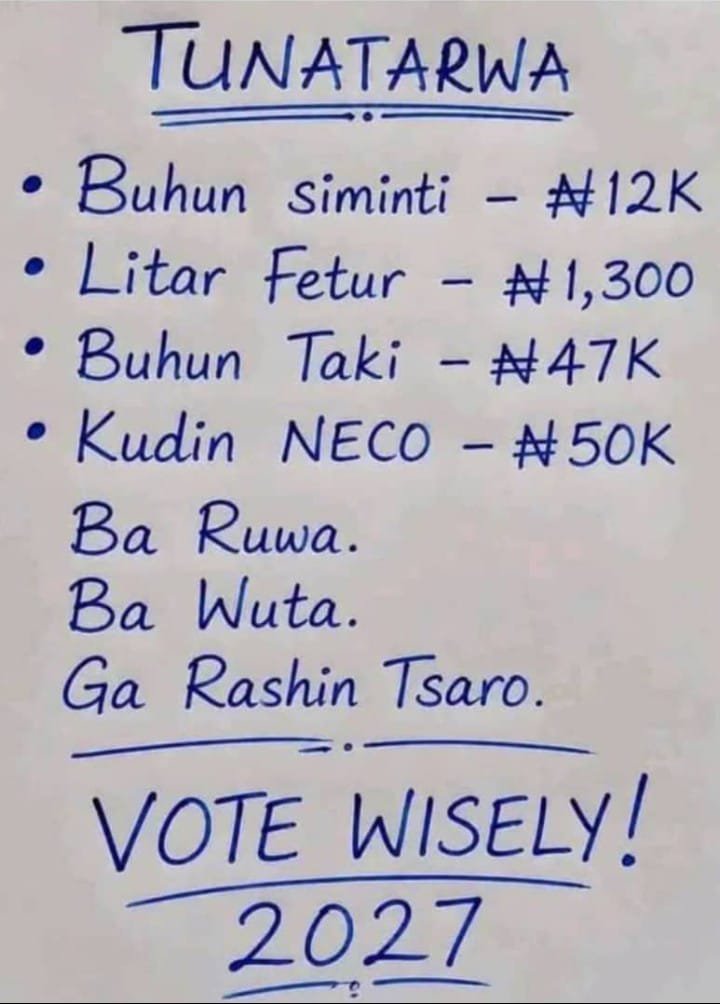 TUNATARWA
• Buhun siminti - ₦12K
• Litar Fetur - ₦1,300
• Buhun Taki - ₦47K
• Kudin NECO - ₦50K
Ba Ruwa.
Ba Wuta.
Ga Rashin Tsaro.
VOTE WISELY!
2027